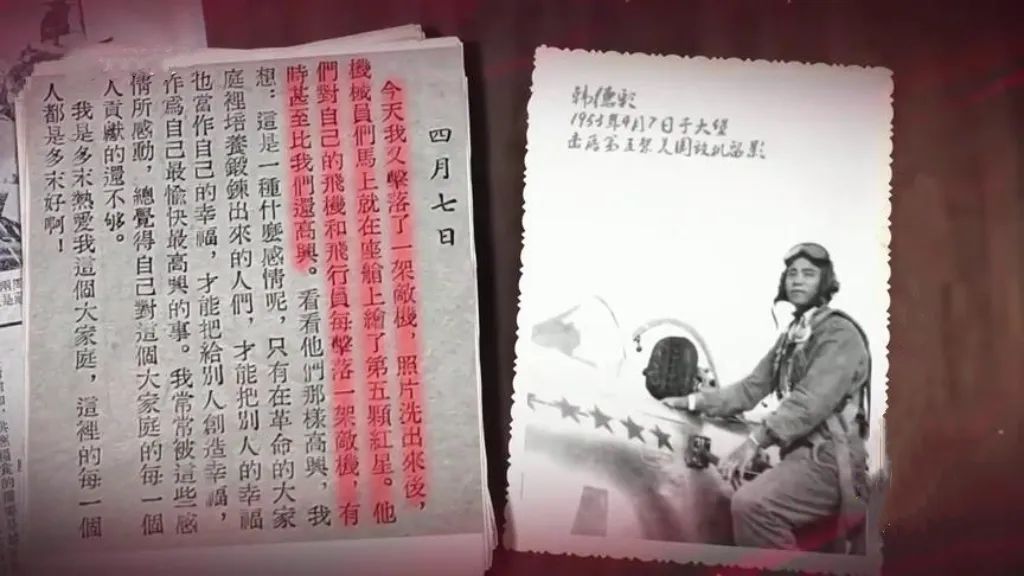 四月七日
今天我又擊落了一架敵機，照片洗出來後，
機械員們馬上就在座艙上繪了第五顆紅星。他
們對自己的飛機和飛行員每擊落一架敵機，有
時甚至比我們還高興。看看他們那樣高興，我
想：這是一種什麼感情呢，只有在革命的大家
庭裡培養鍛鍊出來的人們，才能把別人的幸福
也當作自己的幸福，才能把給別人創造幸福，
作爲自己最愉快最高興的事。我常常被這些感
情所感動，總覺得自己對這個大家庭的每一個
人貢獻的還不够。
我是多末熱愛我這個大家庭，這裡的每一個
人都是多末好啊！
韩德彩
1953年4月7日于大堡
击落第五架美国敌机留影